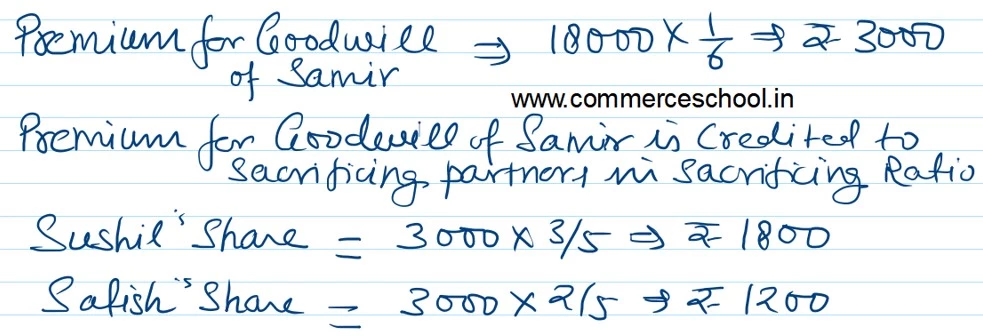 Premium for Goodwill ⇒ 18000 × 1/6 ⇒ ₹ 3000
of Samir
www.commerceschool.in
Premium for Goodwill of Samir is Credited to
Sacrificing partners in Sacrificing Ratio
Sushil's Share = 3000 × 3/5 ⇒ ₹ 1800
Satish's Share = 3000 × 2/5 ⇒ ₹ 1200